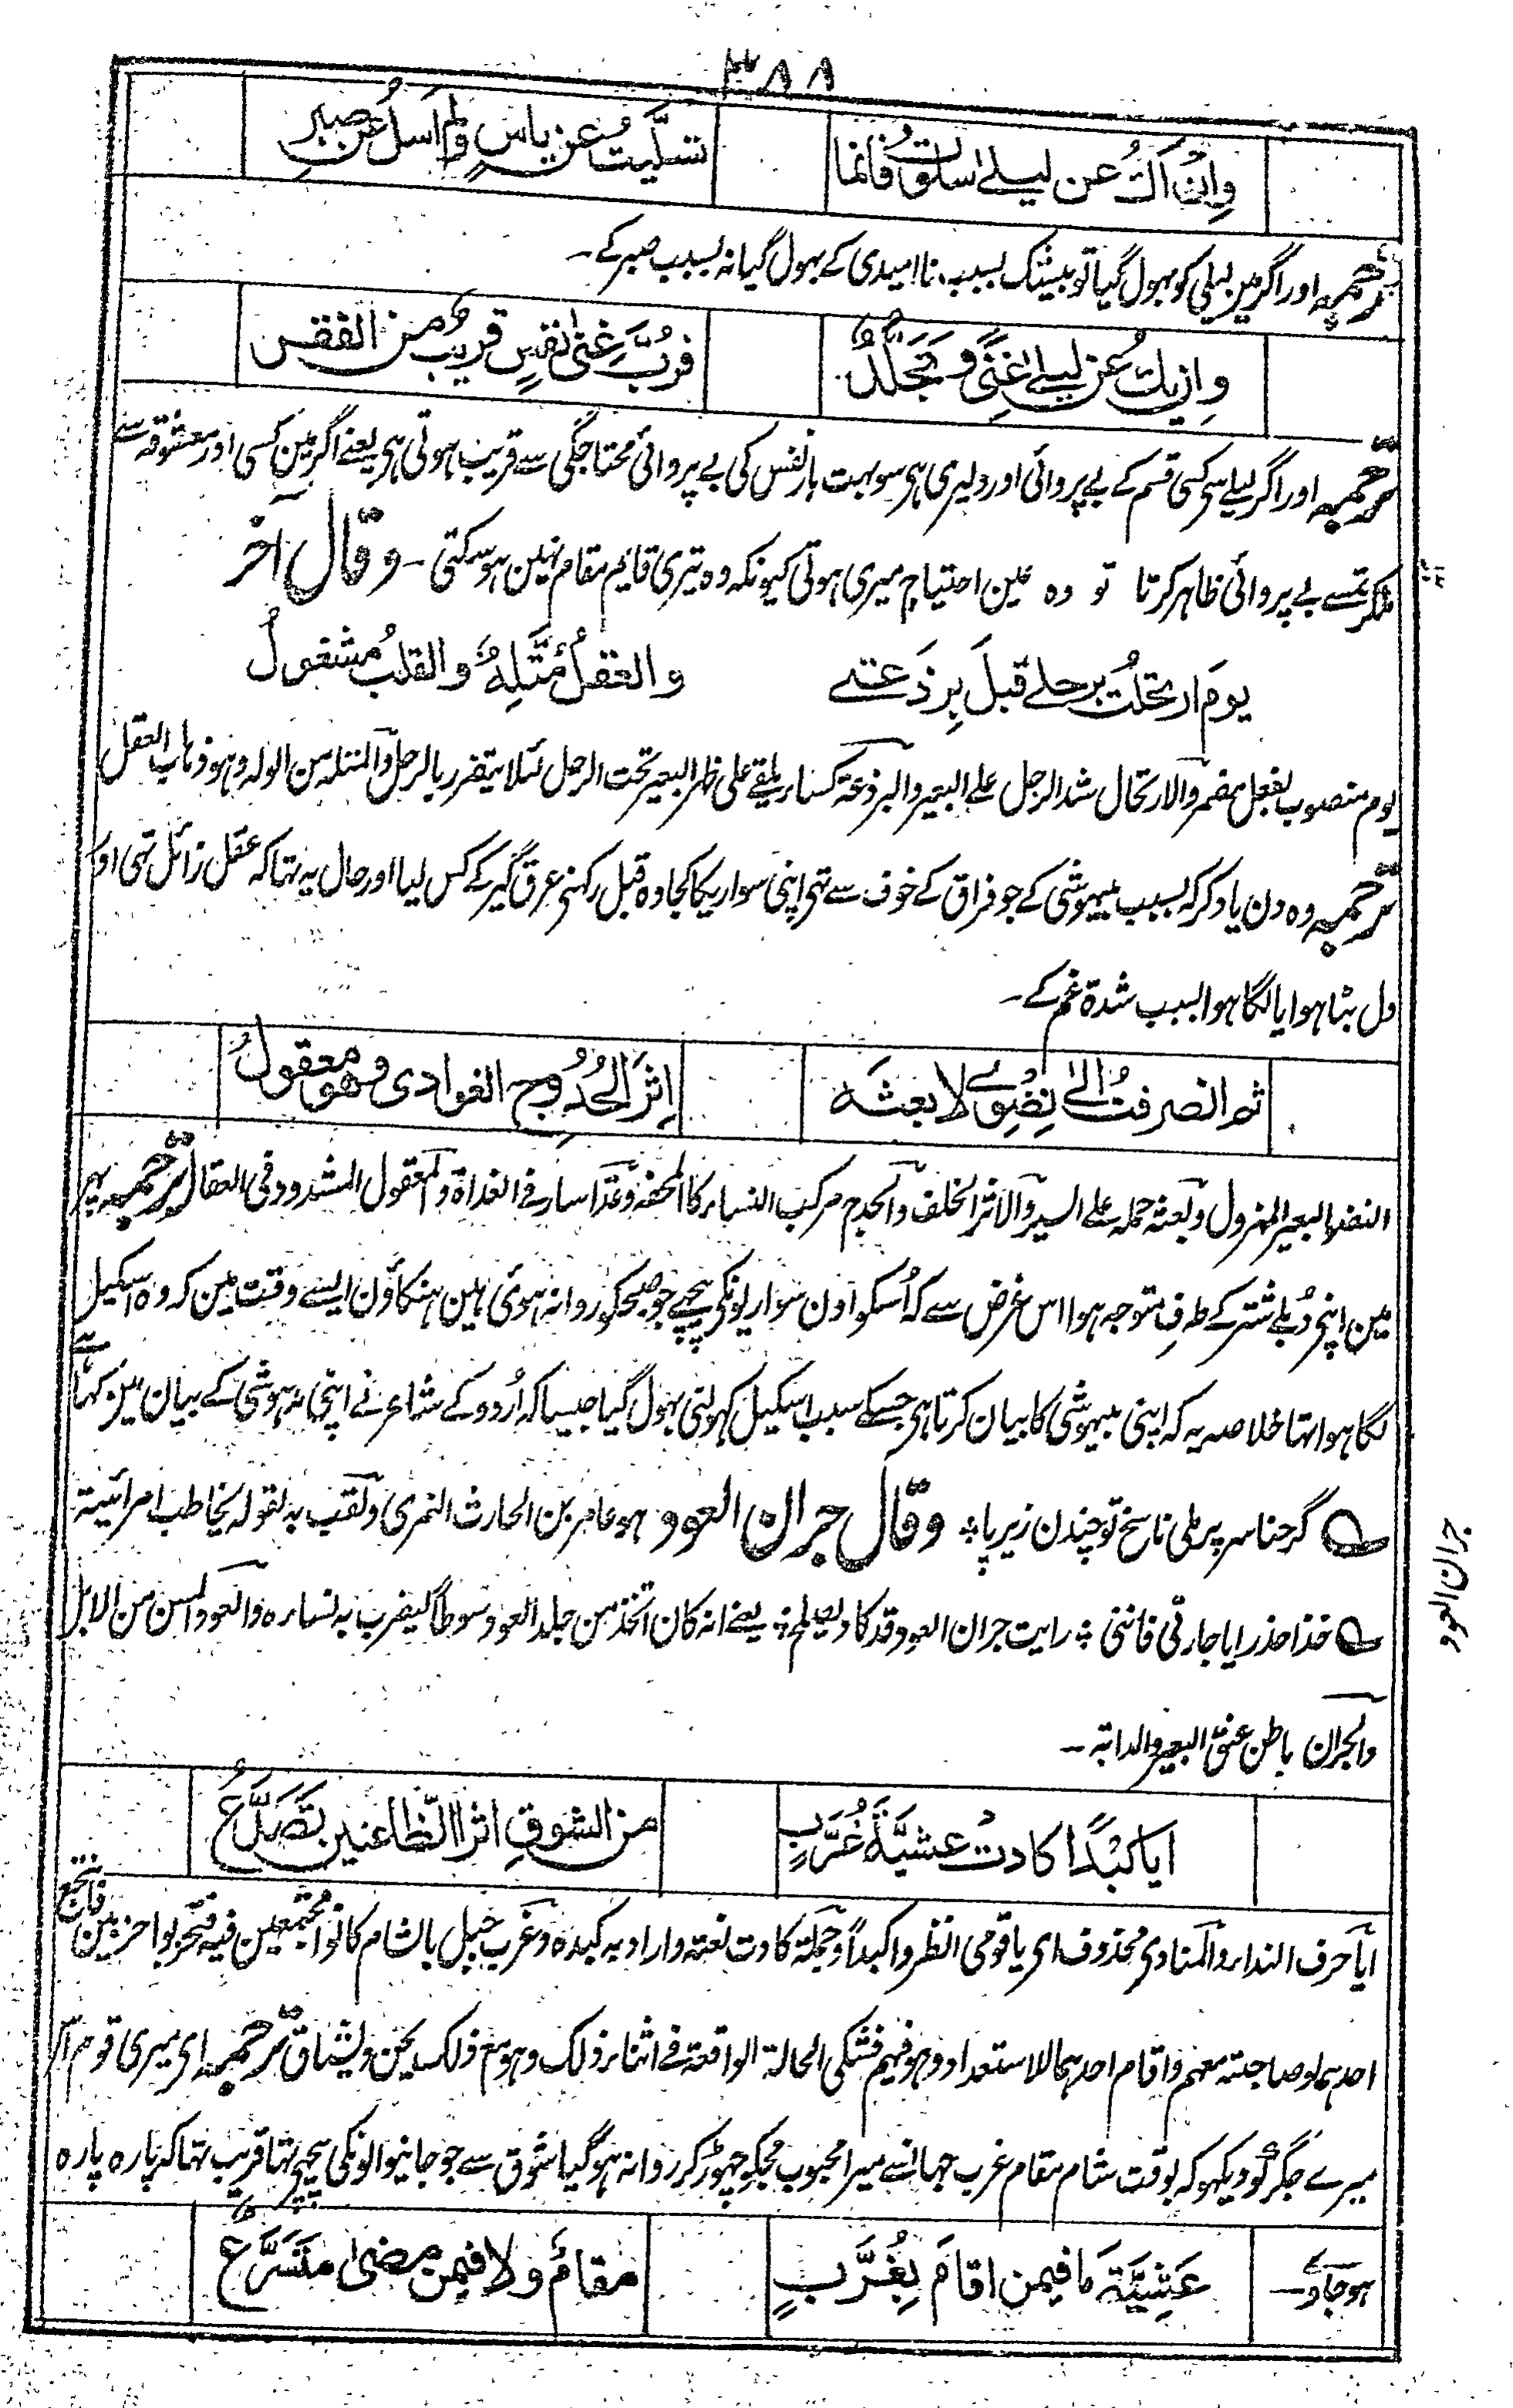 ۳۸۸
وان اک عن لیلے اسلوت فانما تسلیت عن یاس ولم اسل عن صبر
ترجمہ اور اگر مین لیلی کو بہول گیا تو بیشک بسبب نا امیدی کے بہول گیا نہ بسبب صبر کے۔
وان یک عن لیلے غنًی وتجلّدٌ فربَّ غنی نفسٍ قریبٌ من الفقر
ترجمہ اور اگر لیلے سے کسی قسم کے بے پروائی اور دلیری ہر سو بہت بار نفس کی بے پروائی محتاجگی سے قریب ہوتی ہر یعنے اگر مین کسی اور معشوقہ سے
ملکر تمسے بے پروائی ظاہر کرتا تو وہ عین احتیاج میری ہوتی کیونکہ وہ تیری قایم مقام نہین ہو سکتی۔ وقال آخر
یومَ ارتحلتُ برحلے قبلَ بِرذَعتے والعقلُ مُتَّلِهٌ والقلبُ مشغولُ
یوم منصوب بفعل مضمر والارتحال شد الرحل علے البعیر والبرذعۃ کساء یلقے علی ظہر البعیر تحت الرحل لئلا یتضرر بالرحل والمتلہ من الولہ وہو ذہاب العقل
ترجمہ وہ دن یاد کر کہ بسبب بیہوشی کے جو فراق کے خوف سے تہی اپنی سواریکا کجاوہ قبل رکہنے عرق گیر کے کس لیا اور حال یہ تہا کہ عقل زائل تہی اور
دل بٹا ہوا یا لگا ہوا بسبب شدۃ غم کے۔
ثم انصرفتُ الےٰ نِضوے لابعثه اِثرَ الحُدُوجِ الغوادی وهو معقولُ
النضو البعیر المہزول وبعثہ حملہ علے السیر والاثر الخلف والحدج مرکب النساء کالمحفہ وغدا سار فے الغداۃ والمعقول المشدود فی العقال ترجمہ پہر
مین اپنے دُبلے شتر کے طرف متوجہ ہوا اس غرض سے کہ اُسکو اون سواریونکے پیچہے جو صبحکو روانہ ہوئی ہین ہنکاؤن ایسے وقت مین کہ وہ اسکیل
لگا ہوا تہا خلاصہ یہ کہ اپنی بیہوشی کا بیان کرتا ہے جسکے سبب اسکیل کہولنی بہول گیا جیسا کہ اُردو کے شاعر نے اپنی بیہوشی کے بیان مین کہا ہے
گر حنا سر پر ملی ناسخ تو چندن زیر پا؛ وقال جران العود ہو عامر بن الحارث النمری ولقب بہ لقولہ یخاطب امرائتیہ
خذا حذرا یا جارتی فاننی ؛ رایت جران العود قد کاد یصلح ؛ یعنے انہ کان اتخذ من جلد العود سوطاً لیضرب بہ نساءہ والعود المسن من الابل
والجران باطن عنق البعیر والدابۃ۔
جران العود
ایا کبدًا کادتْ عشیَّةَ غُرَّبٍ من الشوقِ اثر الظّاعنین تَصَدَّعُ
ایا حرف النداء والمنادی محذوف ای یا قومی انظروا کبداً وجملۃ کادت نعتہ واراد بہ کبدہ وغرب جبل بالشام کانوا مجتمعین فیہ فتحزبوا حزبین فانتجع
احدہما لوصاحبتہ معہم واقام احدہما للاستعداد وہو فیہم فشکی الحالۃ الواقعۃ فے اثناء ذلک وہو مع ذلک یحن ویشتاق ترجمہ ای میری قوم آکر
میرے جگر کو دیکہو کہ بوقت شام مقام غرب جہانسے میرا محبوب مجکو چہوڑ کر روانہ ہو گیا شوق سے جو جانیوالونکی پیچہے تہا قریب تہا کہ پارہ پارہ
ہو جاوے۔ عَشِیَّةَ ما فیمن اقامَ بِغُرَّبٍ مقامٌ ولا فیمن مضیٰ متسَرَّعُ